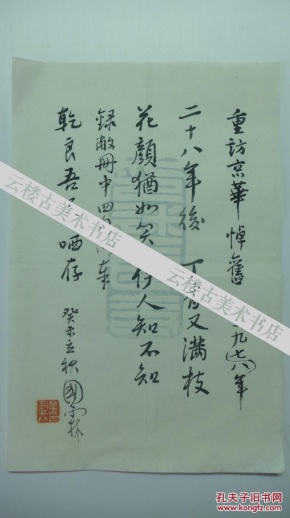 重访京華悼舊 一九七八年
二十八年後 丁香又滿枝
花顏猶如笑 伊人知不知
録敝冊中四
乾良吾 哂存
癸未立秋
云楼古美术书店
云楼古美术书店
云楼古美术书店
孔夫子旧书网